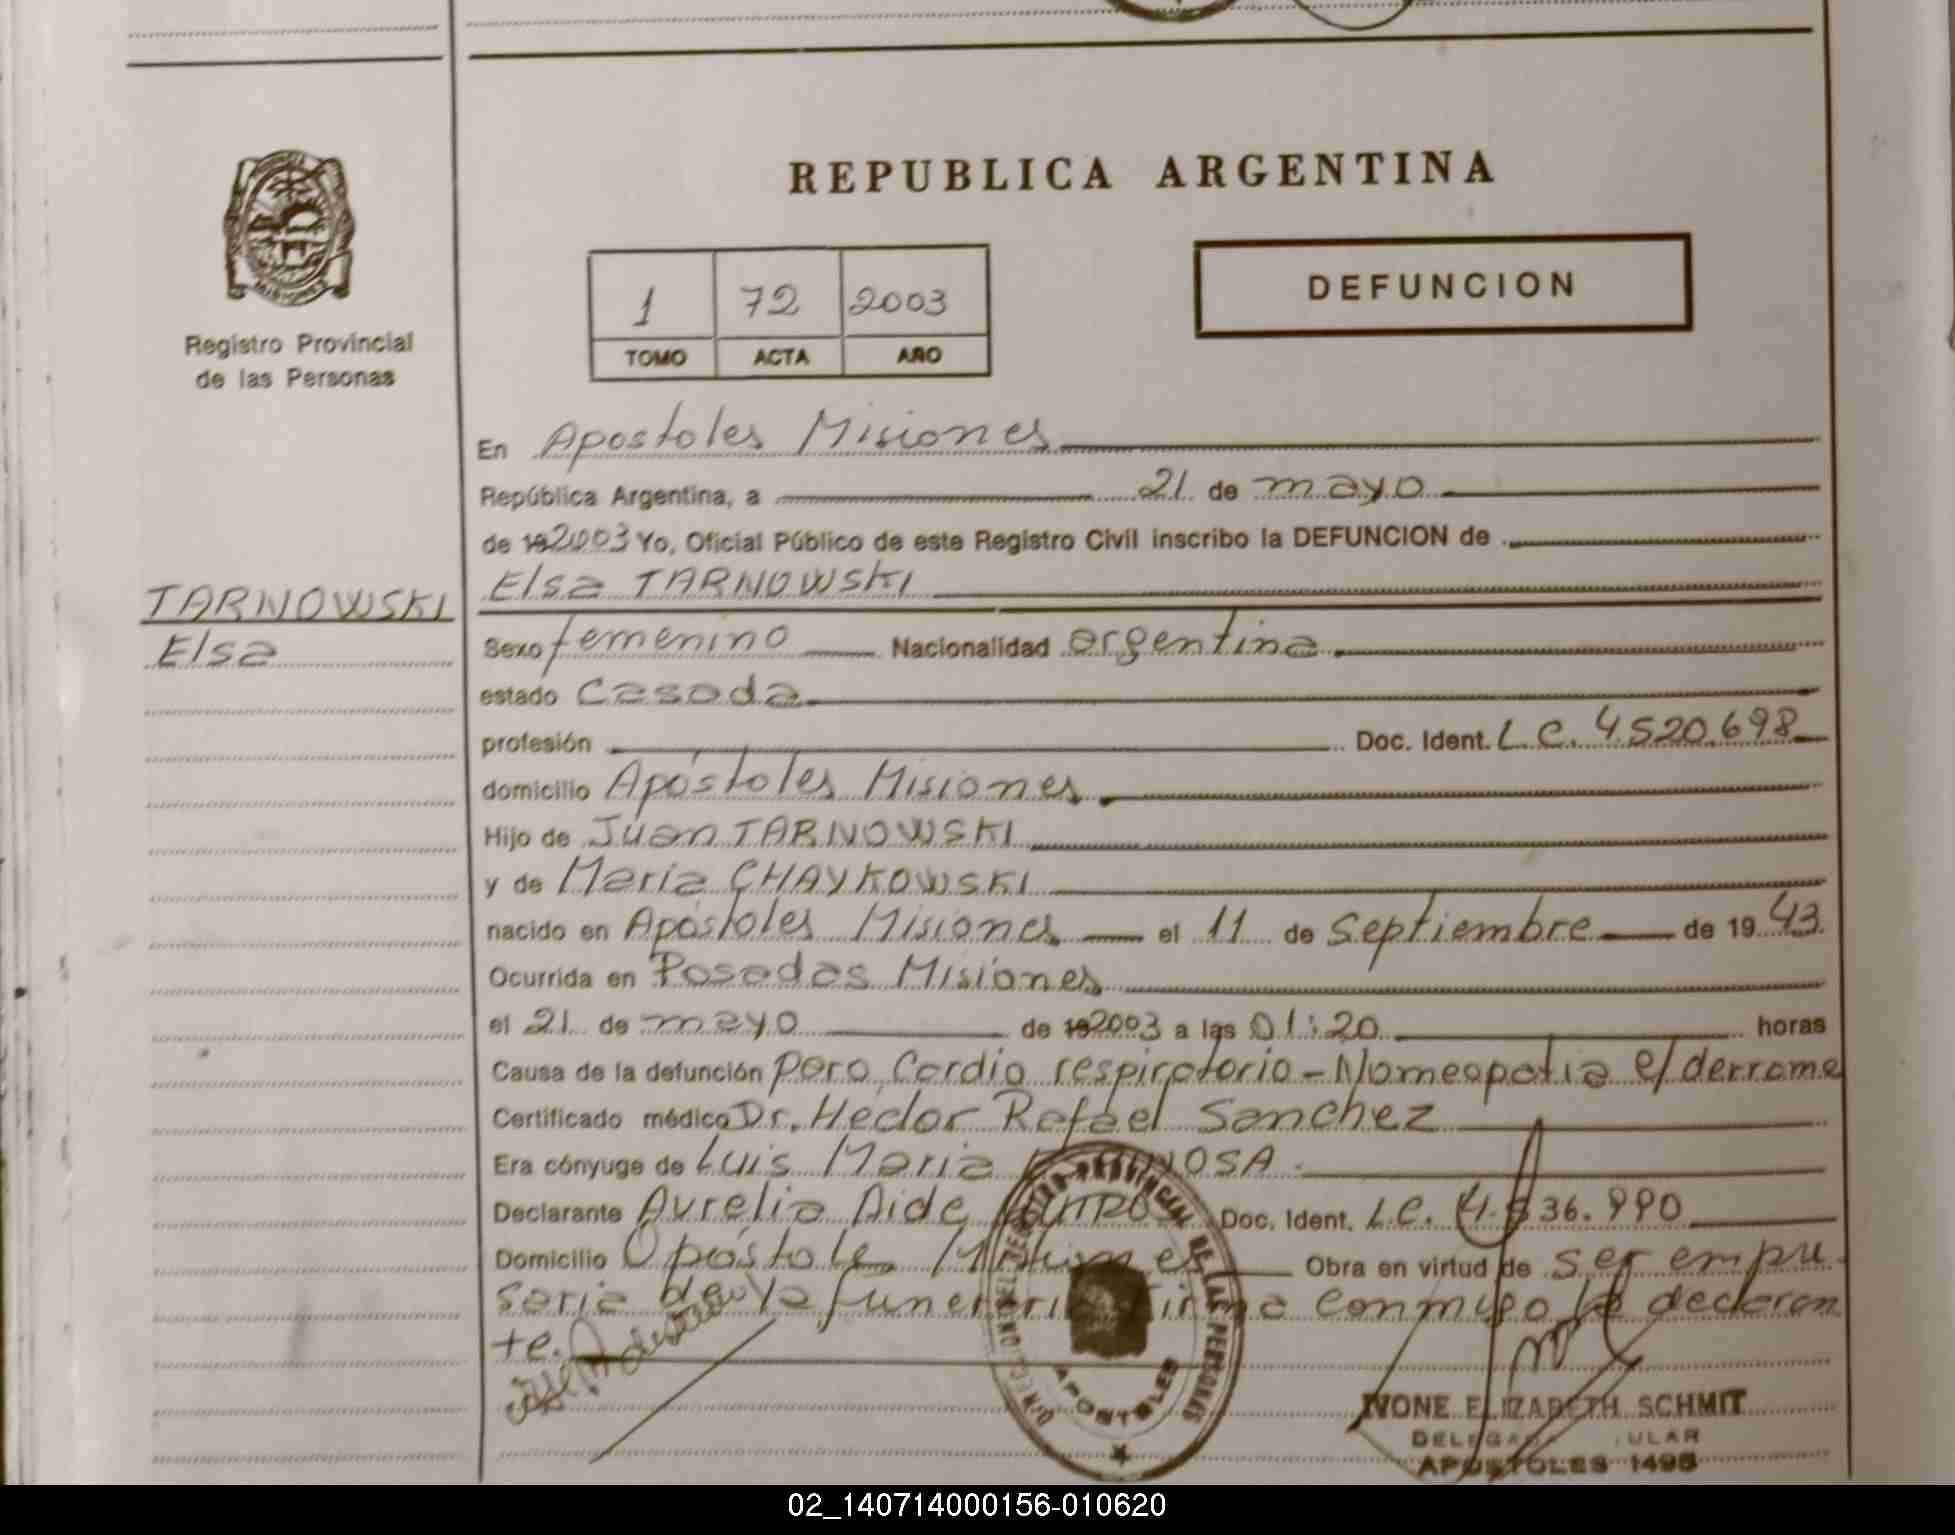 REPUBLICA ARGENTINA
MISIONES
Registro Provincial
de las Personas
1 72 2003
TOMO ACTA AÑO
DEFUNCION
En Apostoles Misiones
República Argentina, a 21 de mayo
de 192003 Yo, Oficial Público de este Registro Civil inscribo la DEFUNCION de
Elsa TARNOWSKI
TARNOWSKI
Elsa
Sexo femenino Nacionalidad argentina
estado Casada
profesión Doc. Ident. L.C. 4.520.698
domicilio Apóstoles Misiones
Hijo de Juan TARNOWSKI
y de Maria CHAYKOWSKI
nacido en Apóstoles Misiones el 11 de septiembre de 1943
Ocurrida en Posadas Misiones
el 21 de mayo de 192003 a las 01:20 horas
Causa de la defunción paro Cardio respiratorio - c/ derrame
Certificado médico Dr. Héctor Rafael Sanchez
Era cónyuge de Luis Maria
Declarante Aurelia Aide Doc. Ident. L.C. 4.536.990
Domicilio Apóstoles Misiones Obra en virtud de ser empre
saria de la funeraria firma conmigo la declaran
te.
DIRECCION REGISTRO PROVINCIAL DE LAS PERSONAS
APOSTOLES
IVONE ELIZABETH SCHMIT
APOSTOLES 1495
02_140714000156-010620